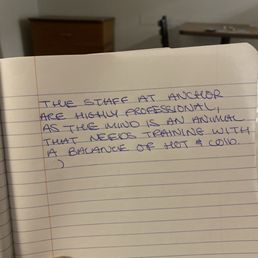 THE STAFF AT ANCHOR
ARE HIGHLY PROFESSIONAL,
AS THE MIND IS AN ANIMAL
THAT NEEDS TRAINING WITH
A BALANCE OF HOT & COLD.
)